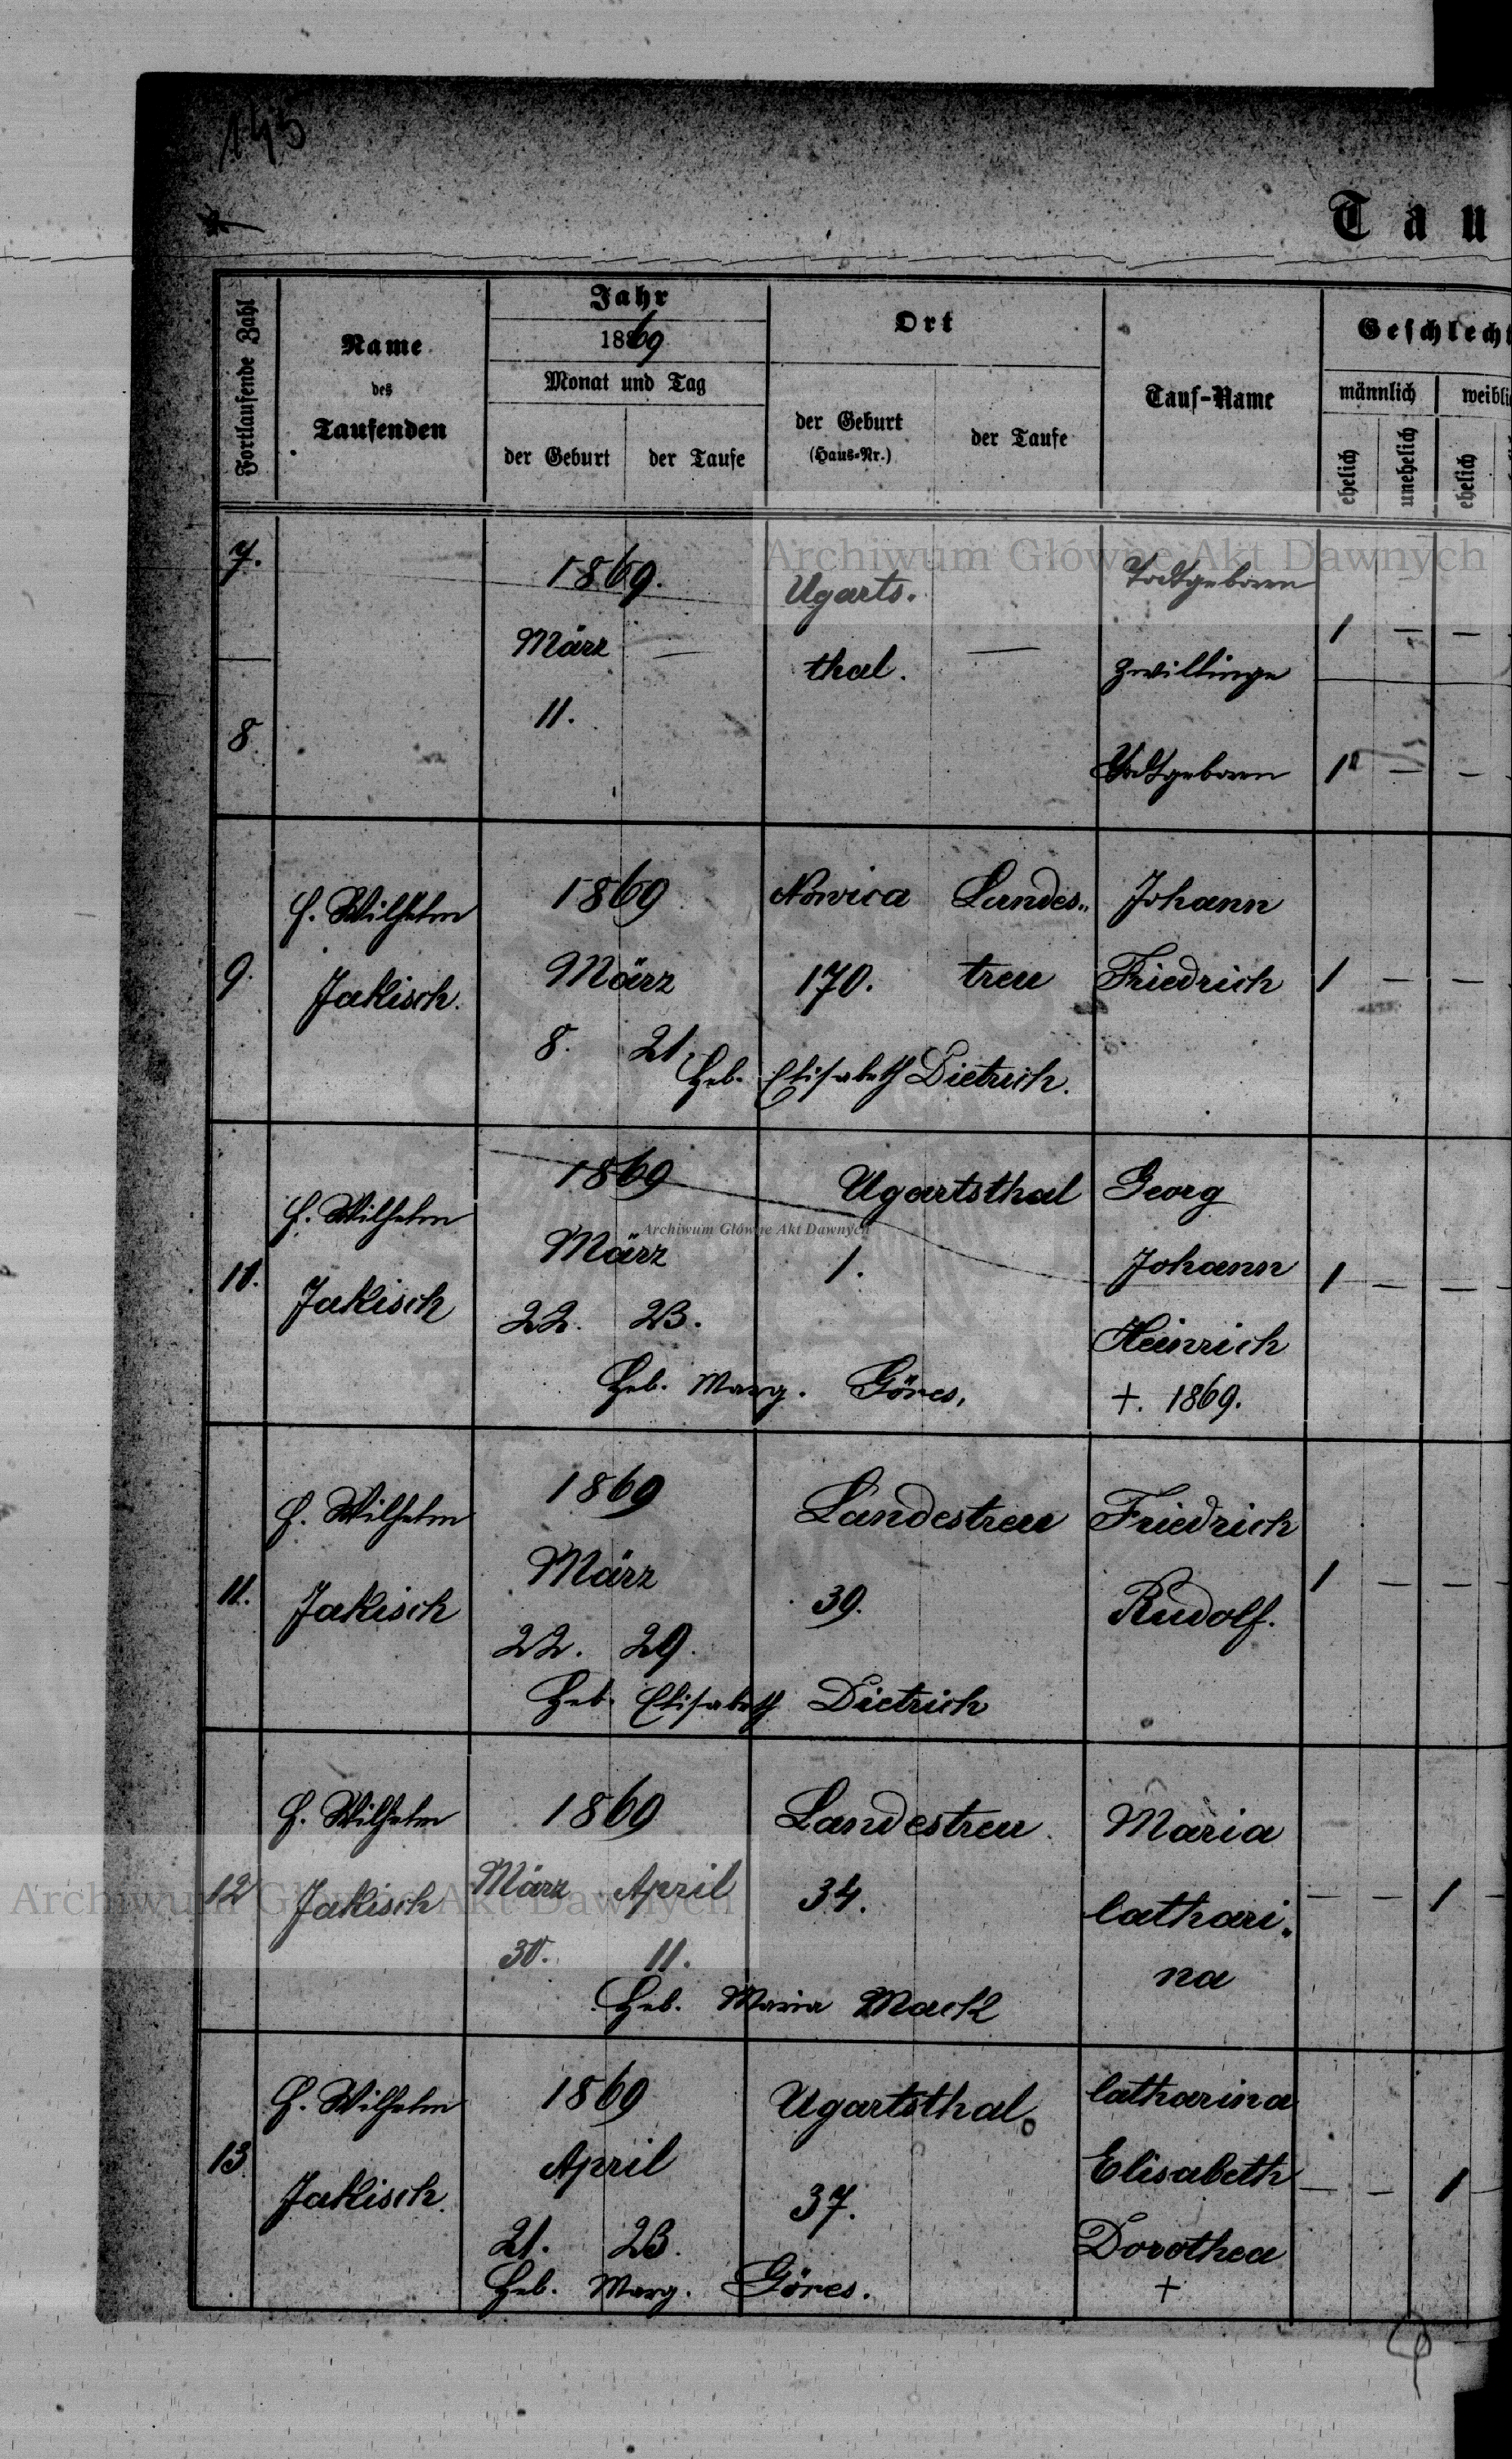 145
Tau
Fortlaufende Zahl
Name
des
Taufenden
Jahr
1869
Monat und Tag
der Geburt
der Taufe
Ort
der Geburt
(Haus-Nr.)
der Taufe
Tauf-Name
Geschlecht
männlich
weibli
ehelich
unehelich
ehelich
Archiwum Główne Akt Dawnych
7.
1869.
Ugarts.
Todtgeboren
März —
thal. —
1 — —
Zwillinge
8.
11.
Todtgeboren
1 — —
H. Wilhelm
1869
Nowica
Landes„
Johann
9.
Jakisch.
März
170.
treu
Friedrich
1 — —
8. 21.
Heb. Elisabeth Dietrich.
H. Wilhelm
1869
Ugartsthal
Georg
Archiwum Główne Akt Dawnych
10.
Jakisch
März
1.
Johann
1 — —
22. 23.
Heinrich
Heb. Marg. Göres.
+. 1869.
H. Wilhelm
1869
Landestreu
Friedrich
11.
Jakisch
März
39.
Rudolf.
1 — —
22. 29.
Heb. Elisabeth Dietrich
H. Wilhelm
1869
Landestreu
Maria
12
Jakisch
März April
34.
Cathari„
— — 1
Archiwum Główne Akt Dawnych
30. 11.
na
Heb. Maria Mack
H. Wilhelm
1869
Ugartsthal.
Catharina
13
Jakisch.
April
37.
Elisabeth
— — 1
21. 23.
Dorothea
Heb. Marg. Göres.
+